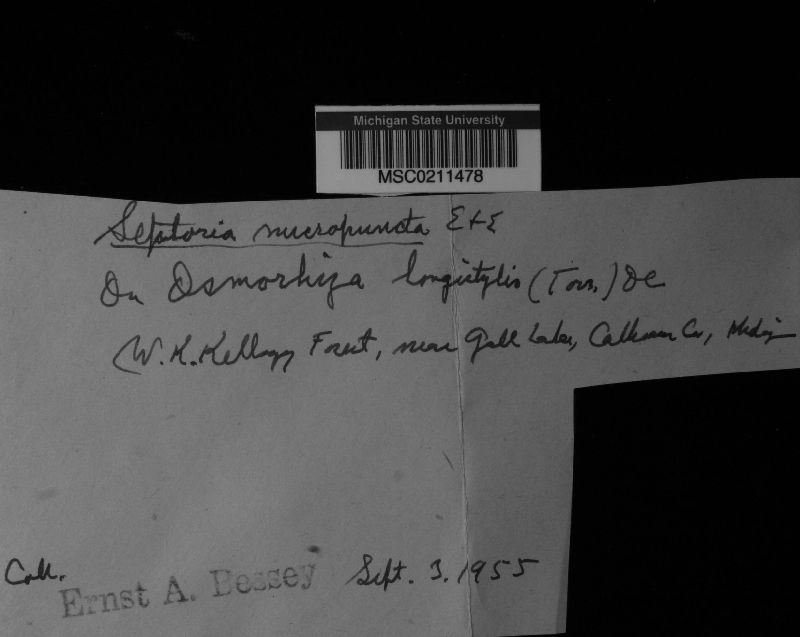 Michigan State University
MSC0211478
Septoria micropuncta E+E
On Osmorhiza longistylis (Torr.) DC
W.K.Kellogg Forest, near Gull Lake, Calhoun Co,
Coll. Ernst A. Bessey Sept. 3. 1955